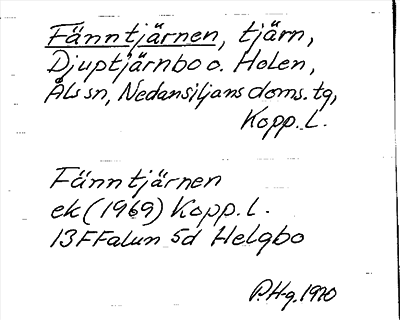 Fänntjärnen, tjärn,
Djuptjärnbo o. Holen,
Åls sn, Nedansiljans doms. tg,
Kopp. l.
Fänntjärnen
ek (1969) Kopp. l.
13F Falun 5d Helgbo
P.H-g. 1970